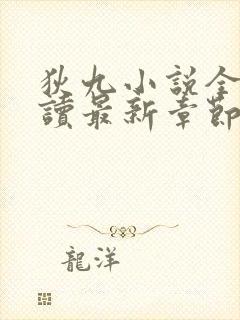 狄九小説全
讀最新章節
龍洋